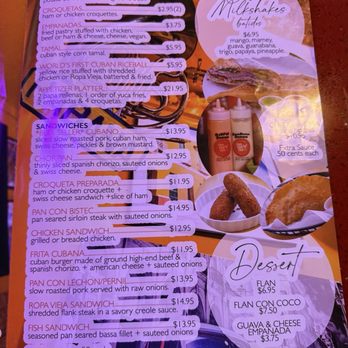 CROQUETAS $2.95(2)
ham or chicken croquettes.
EMPANADAS $3.75
fried pastry stuffed with chicken,
beef or ham & cheese, cheese, vegan.
TAMAL $5.95
cuban style corn tamal.
WORLD'S FIRST CUBAN RICEBALL $5.95
yellow rice stuffed with shredded
chicken or Ropa Vieja, battered & fried.
APPETIZER PLATTER $21.95
2 papa rellenas, 1 order of yuca fries,
2 empanadas & 4 croquetas.
SANDWICHES
"BEST SELLER" CUBANO $13.95
sliced slow roasted pork, cuban ham,
swiss cheese, pickles & brown mustard.
CHORIPAN $12.95
thinly sliced spanish chorizo, sauteed onions
& swiss cheese.
CROQUETA PREPARADA $11.95
ham or chicken croquette +
swiss cheese sandwich + slice of ham
PAN CON BISTEC $14.95
pan seared sirloin steak with sauteed onions.
CHICKEN SANDWICH $12.95
grilled or breaded chicken.
FRITA CUBANA $11.95
cuban burger made of ground high-end beef &
spanish chorizo. + american cheese + sauteed onions
PAN CON LECHON/PERNIL $13.95
slow roasted pork served with raw onions.
ROPA VIEJA SANDWICH $14.95
shredded flank steak in a savory creole sauce.
FISH SANDWICH $13.95
seasoned pan seared bassa filet + sauteed onions
Milkshakes
batidos
$6.95
mango, mamey,
guava, guanabana,
trigo, papaya, pineapple.
Extra Sauce
50 cents each
Dessert
FLAN
$6.95
FLAN CON COCO
$7.50
GUAVA & CHEESE
EMPANADA
$3.75